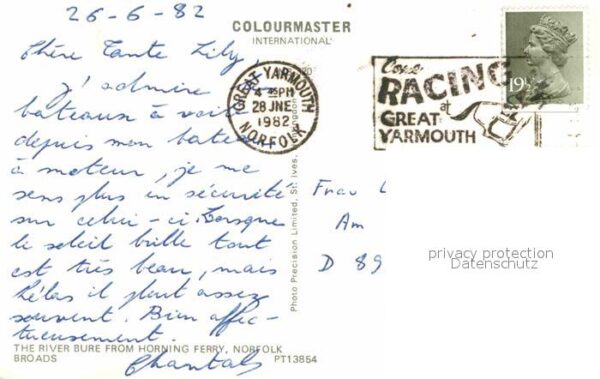 26-6-82
COLOURMASTER
INTERNATIONAL
Chère Tante Lily,
j'admire les
bateaux à voile
depuis mon bateau
à moteur, je me
sens plus en sécurité
sur celui-ci. Lorsque
le soleil brille tout
est très beau, mais
hélas il pleut assez
souvent. Bien affec-
tueusement.
Chantal
THE RIVER BURE FROM HORNING FERRY, NORFOLK
BROADS
PT13854
Photo Precision Limited, St. Ives,
GREAT YARMOUTH
4 PM
28 JNE
1982
NORFOLK
Come
RACING
at
GREAT
YARMOUTH
19½
Frau L
Am
D 89
privacy protection
Datenschutz